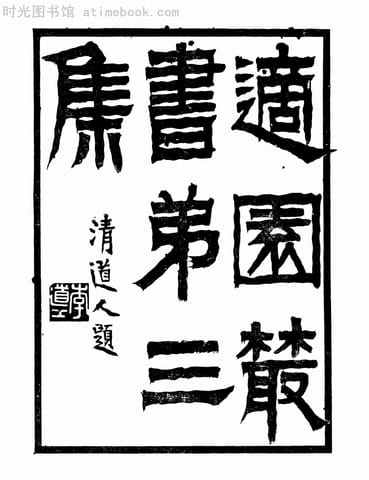 时光图书馆 atimebook.com
適園叢
書弟三
集
清道人題
李道士